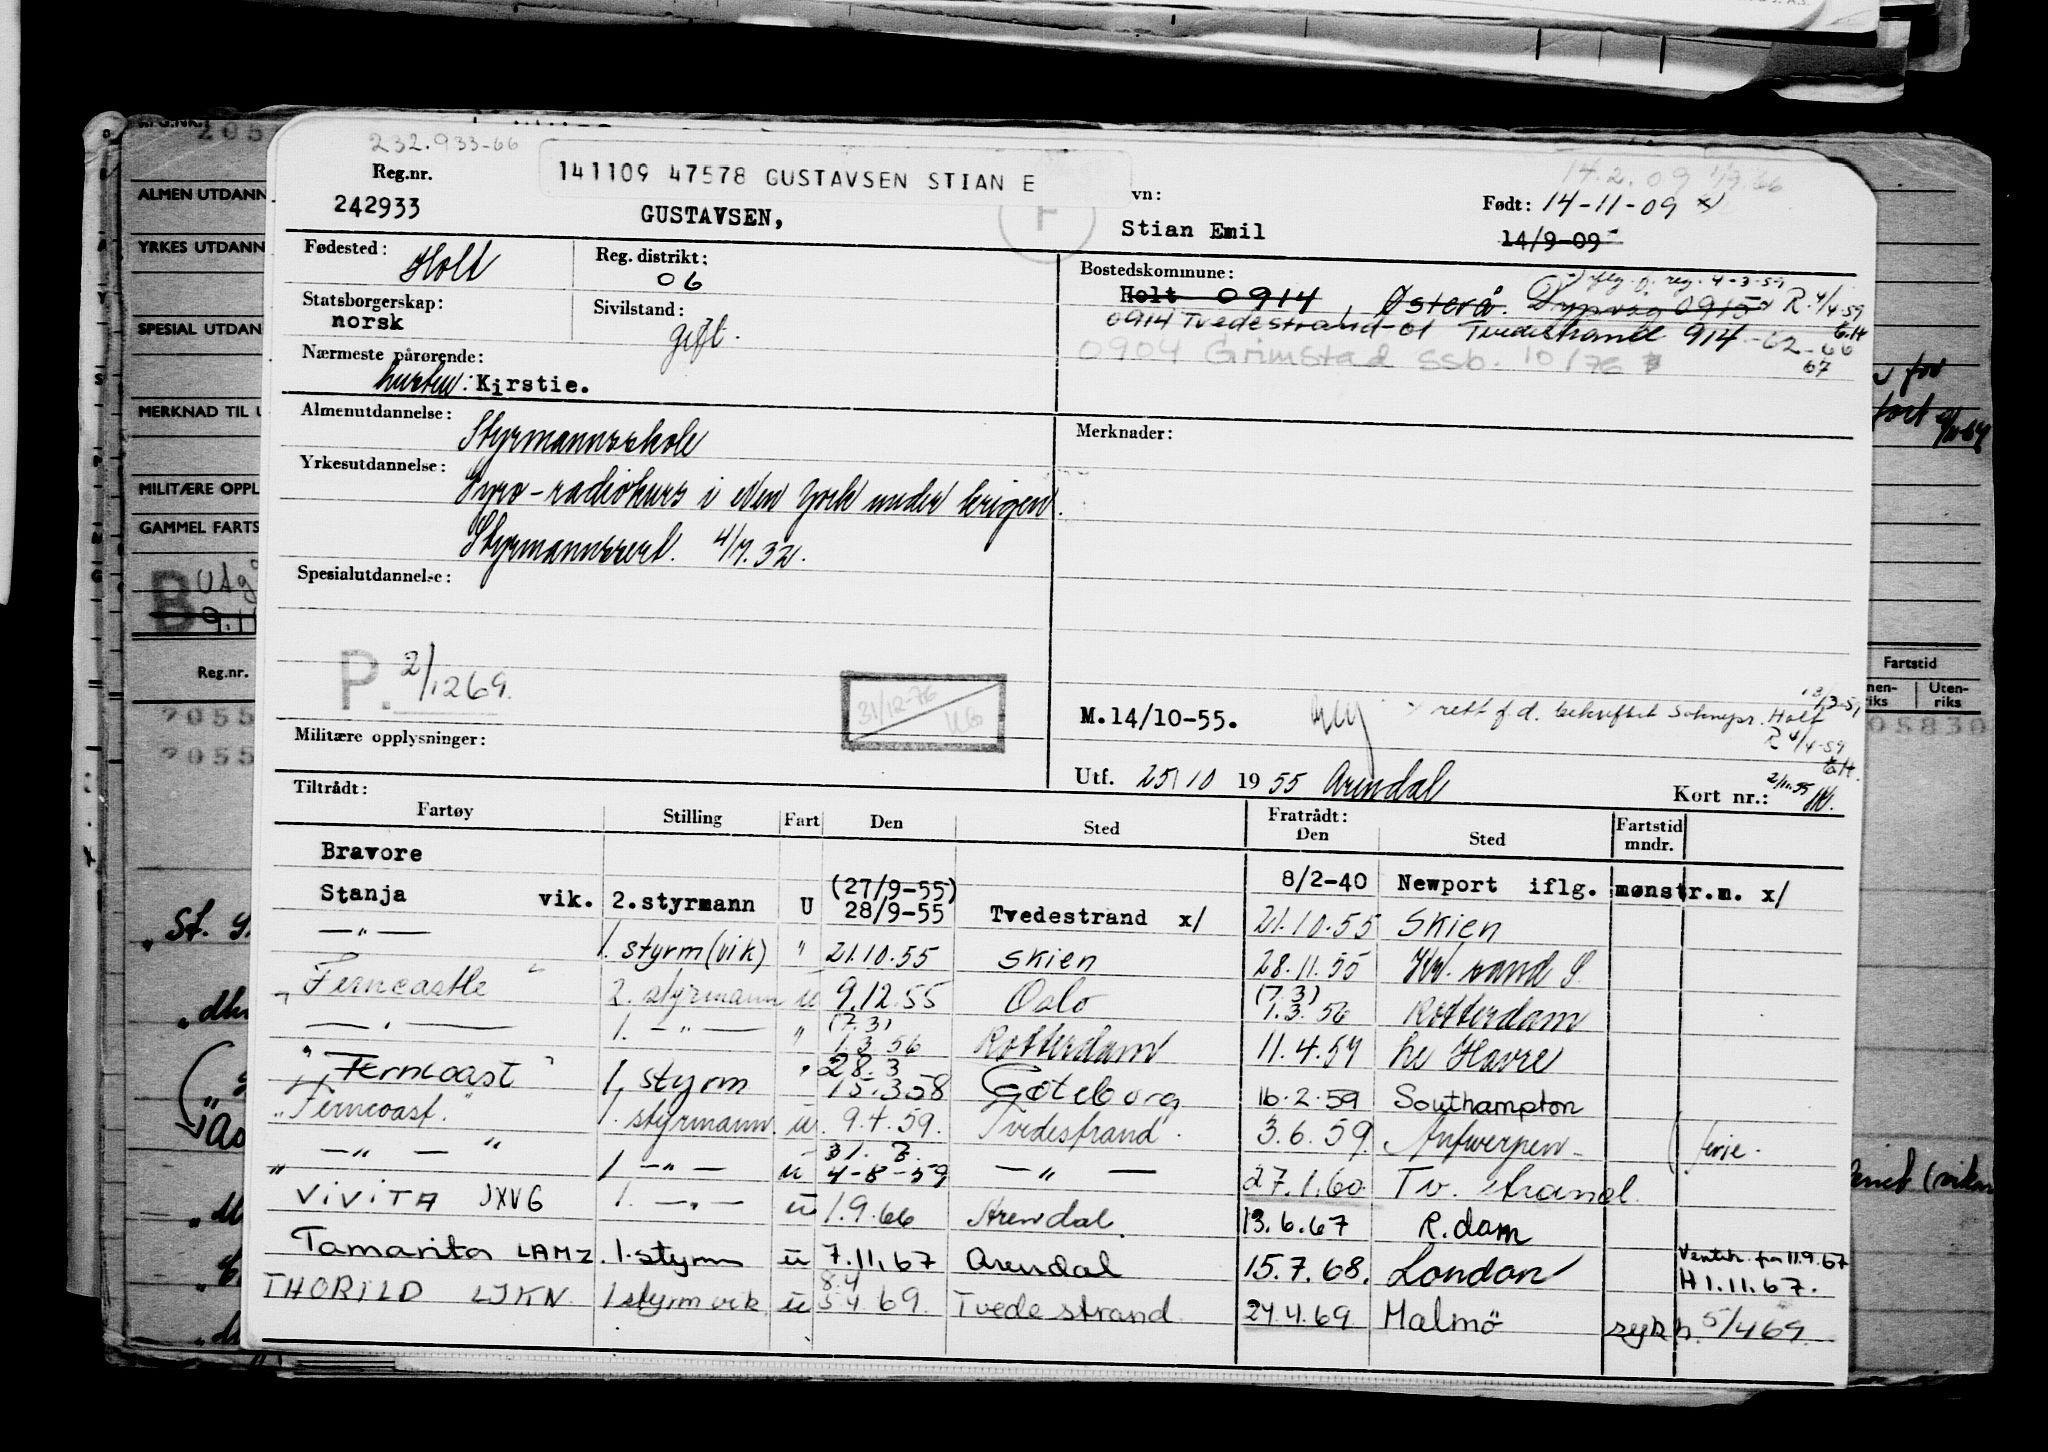 232.933-66
Reg.nr.
242933
141109 47578 GUSTAVSEN STIAN E
GUSTAVSEN,
vn:
Stian Emil
14.2.09
Født: 14-11-09 x/
14/9-09
F
Fødested: Holt
Reg. distrikt: 06
Bostedskommune:
Holt 0914, Østerå. Dypvåg 0915 R. 4/4-59
Statsborgerskap: norsk
Sivilstand: gift.
0914 Tvedestrand-61 Tvedestrand 914-62-66
67
0904 Grimstad SSB. 10/76
Nærmeste pårørende:
hustru: Kirstie.
Almenutdannelse: Styrmannsskole
Merknader:
Yrkesutdannelse: Gyro-radiokurs i New York under krigen.
Styrmannssert. 4/7.32.
Spesialutdannelse:
P. 2/1269.
31/12-76
M.14/10-55.
x rett f.d. bekreftet Soknepr. Holt 13/3-59
R 4/4-59
Militære opplysninger:
Utf. 25/10 1955 Arendal
Kort nr.: 2/11.55
Tiltrådt:
Fartøy Stilling Fart Den Sted Fratrådt: Den Sted Fartstid mndr.
Bravore 8/2-40 Newport iflg. mønstr.m. x/
Stanja vik. 2.styrmann U (27/9-55) 28/9-55 Tvedestrand x/ 21.10.55 Skien
—"— 1. styrm (vik) " 21.10.55 Skien 28.11.55 Kr. sand S.
"Ferncastle" 2. styrmann u 9.12.55 Oslo (7.3) 1.3.56 Rotterdam
—"— 1. —"— " (7.3) 1.3.56 Rotterdam 11.4.57 Le Havre
"Ferncoast" 1. styrm " 28.3 15.3.58 Göteborg 16.2.59 Southampton
"Ferncoast." 1. styrmann. u. 9.4.59. Tvedestrand. 3.6.59. Antwerpen - ferie.
" —"— " 1 —"— u 31.7. 4-8-59 —"— 27.1.60. Tv. strand.
VIVITA JXVG 1. —"— u 1.9.66 Arendal. 13.6.67 R.dam
Tamarita LAMZ. 1. styrm u 7.11.67 Arendal 15.7.68. London Ventet. fra 11.9.67 H 1.11.67.
THORILD LJKN. 1 styrm vik u 8.4 5 4.69. Tvedestrand 24.4.69 Malmö syk h. 5/469.
ALMEN UTDANN
YRKES UTDANN
SPESIAL UTDAN
MERKNAD TIL U
MILITÆRE OPPL
GAMMEL FARTS
B
Reg.nr.
2055
2055
Fartstid
Uten-riks
05830